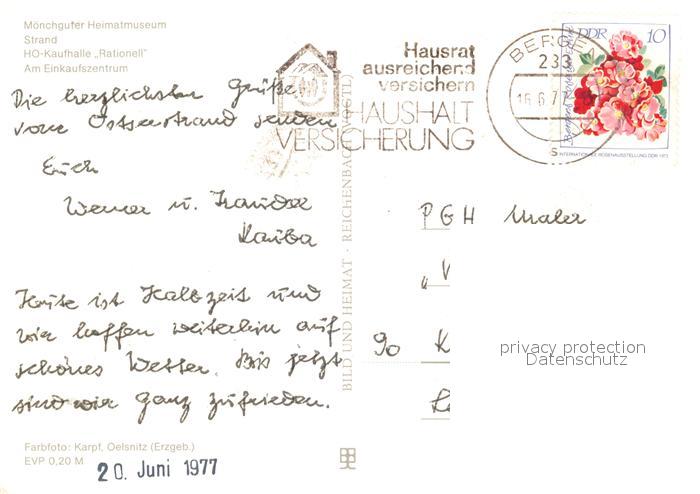 Mönchguter Heimatmuseum
Strand
HO-Kaufhalle „Rationell"
Am Einkaufszentrum
Die herzlichsten Grüße
vom Ostseestrand senden
Euch
Werner u.
Heute ist Halbzeit und
wir hoffen weiterhin auf
schönes Wetter. Bis jetzt
sind wir ganz zufrieden.
Farbfoto: Karpf, Oelsnitz (Erzgeb.)
EVP 0,20 M
20. Juni 1977
BILD UND HEIMAT · REICHENBACH (VOGTL)
Hausrat
ausreichend
versichern
HAUSHALT
VERSICHERUNG
BERGEN
233
16.6.7
DDR 10
INTERNATIONALE ROSENAUSSTELLUNG DDR 1972
PGH Maler
„V
90 K
privacy protection
Datenschutz